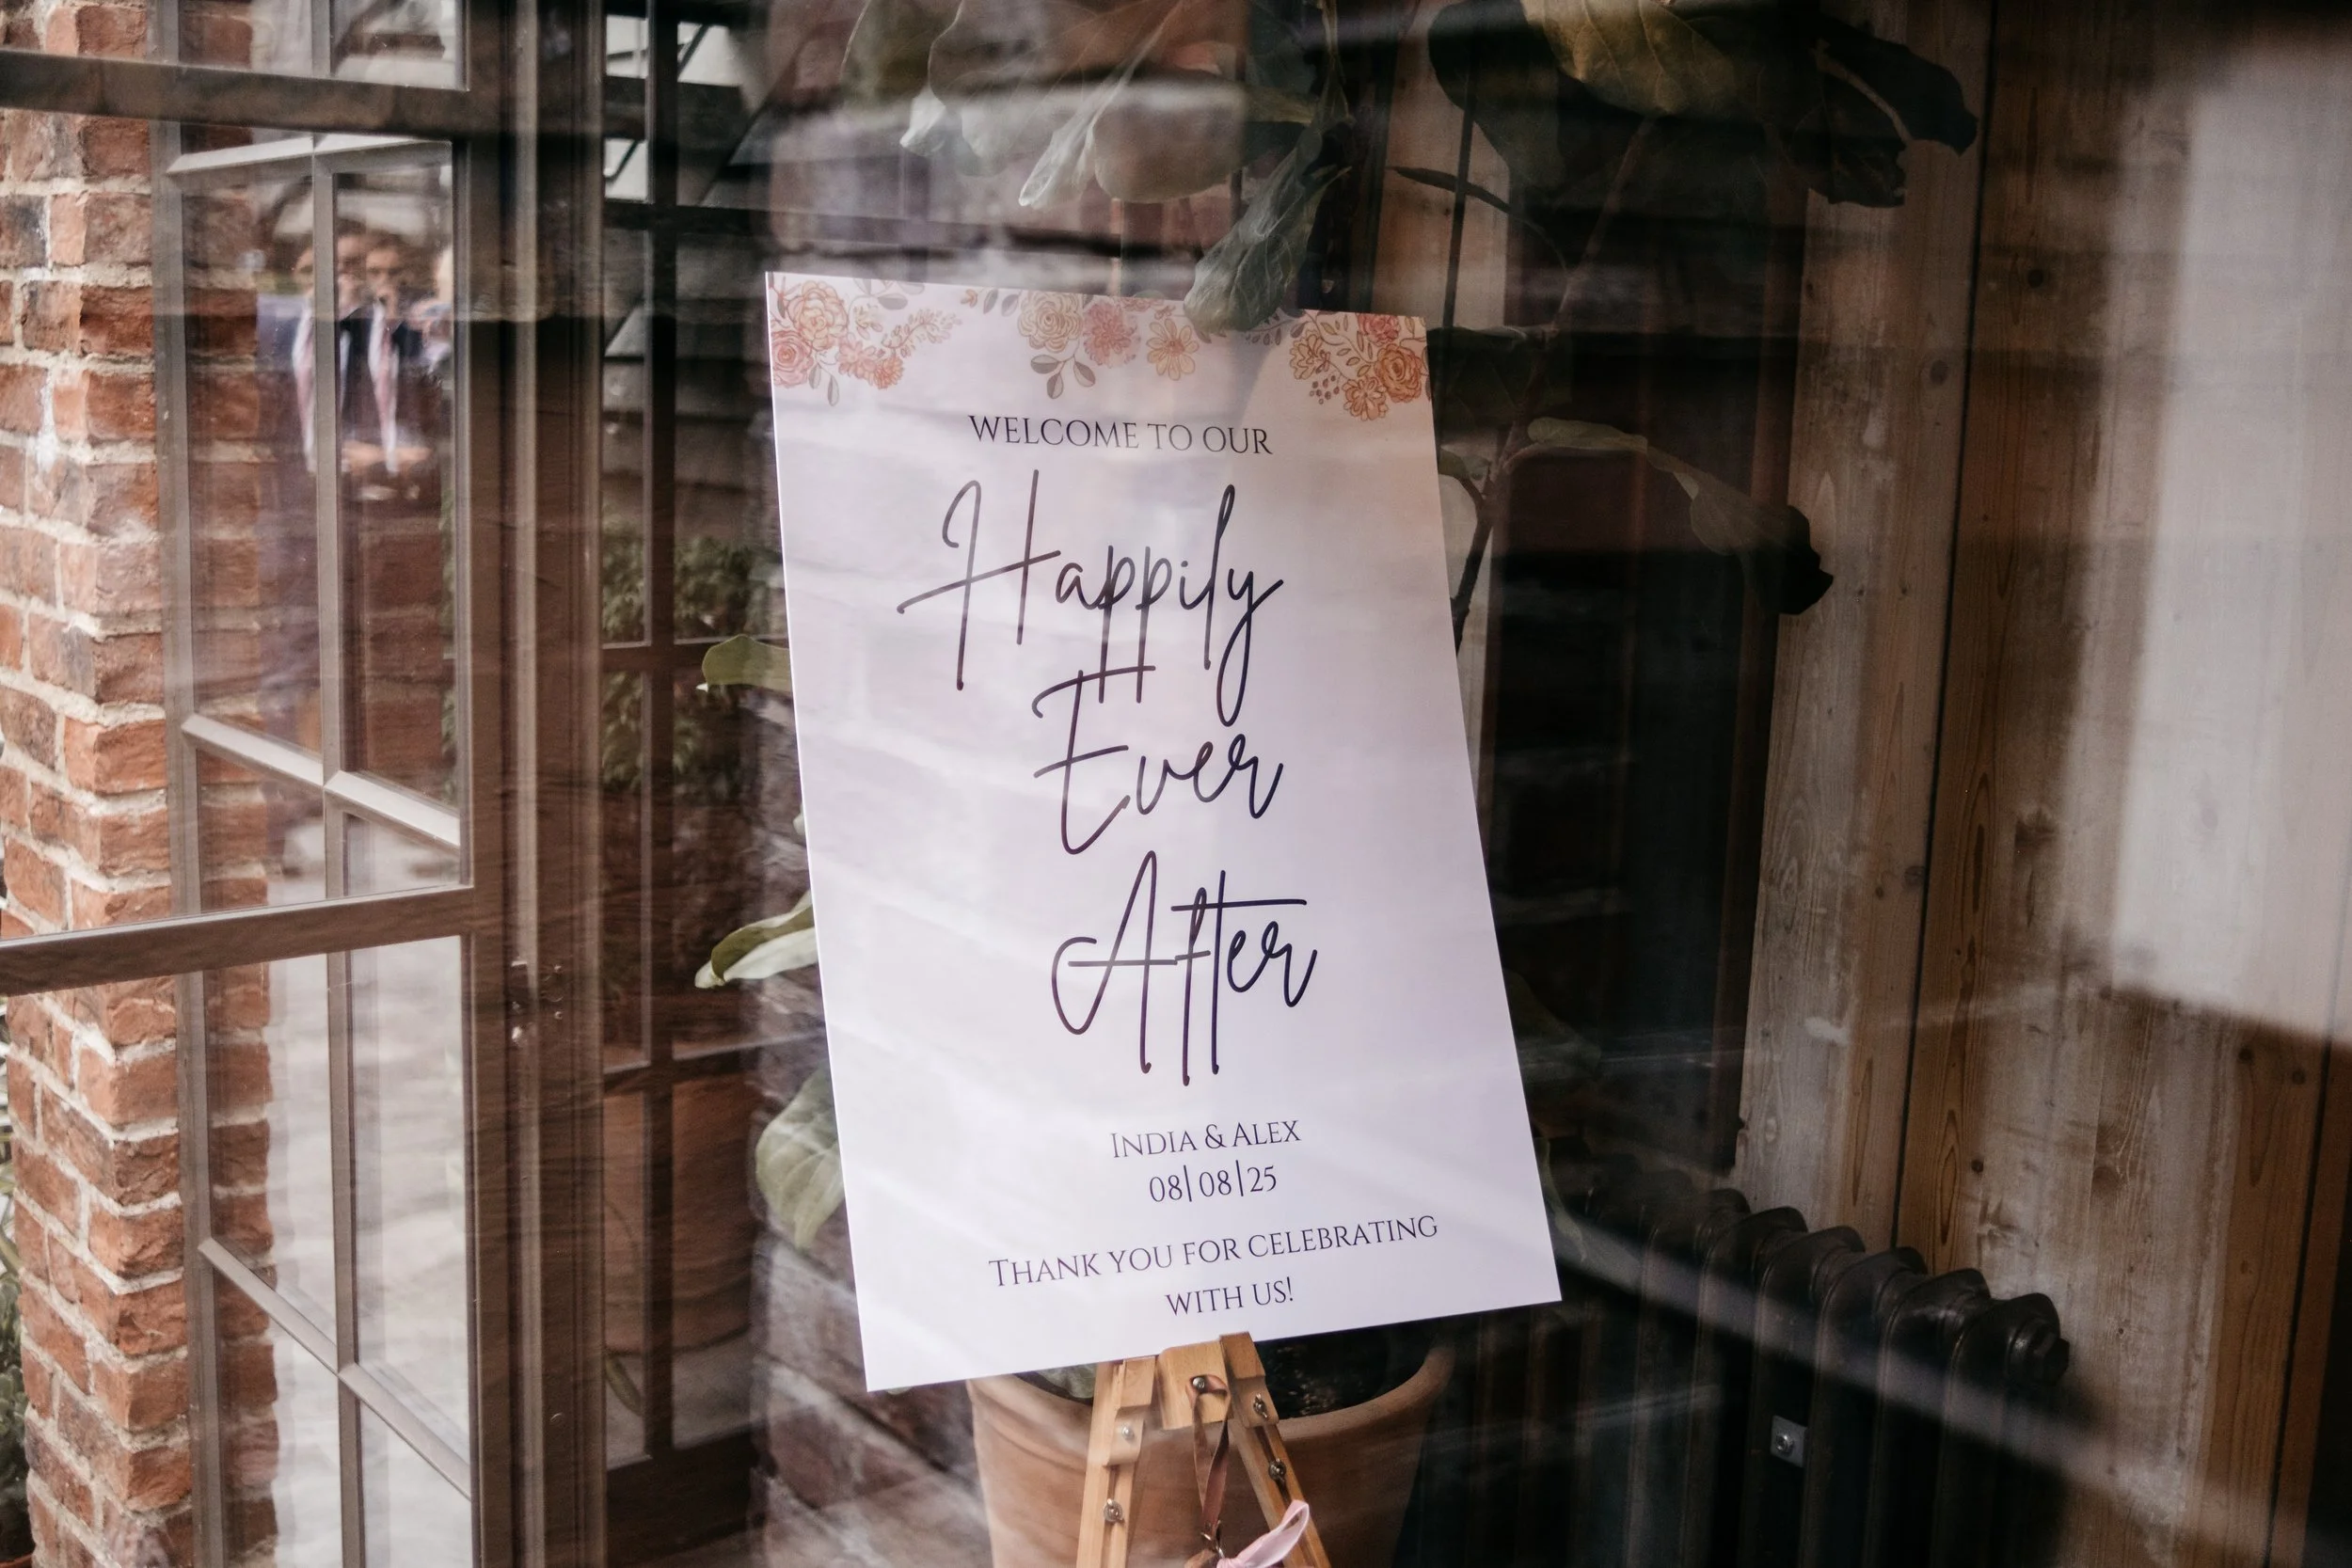 WELCOME TO OUR
Happily
Ever
After
INDIA & ALEX
08|08|25
THANK YOU FOR CELEBRATING
WITH US!